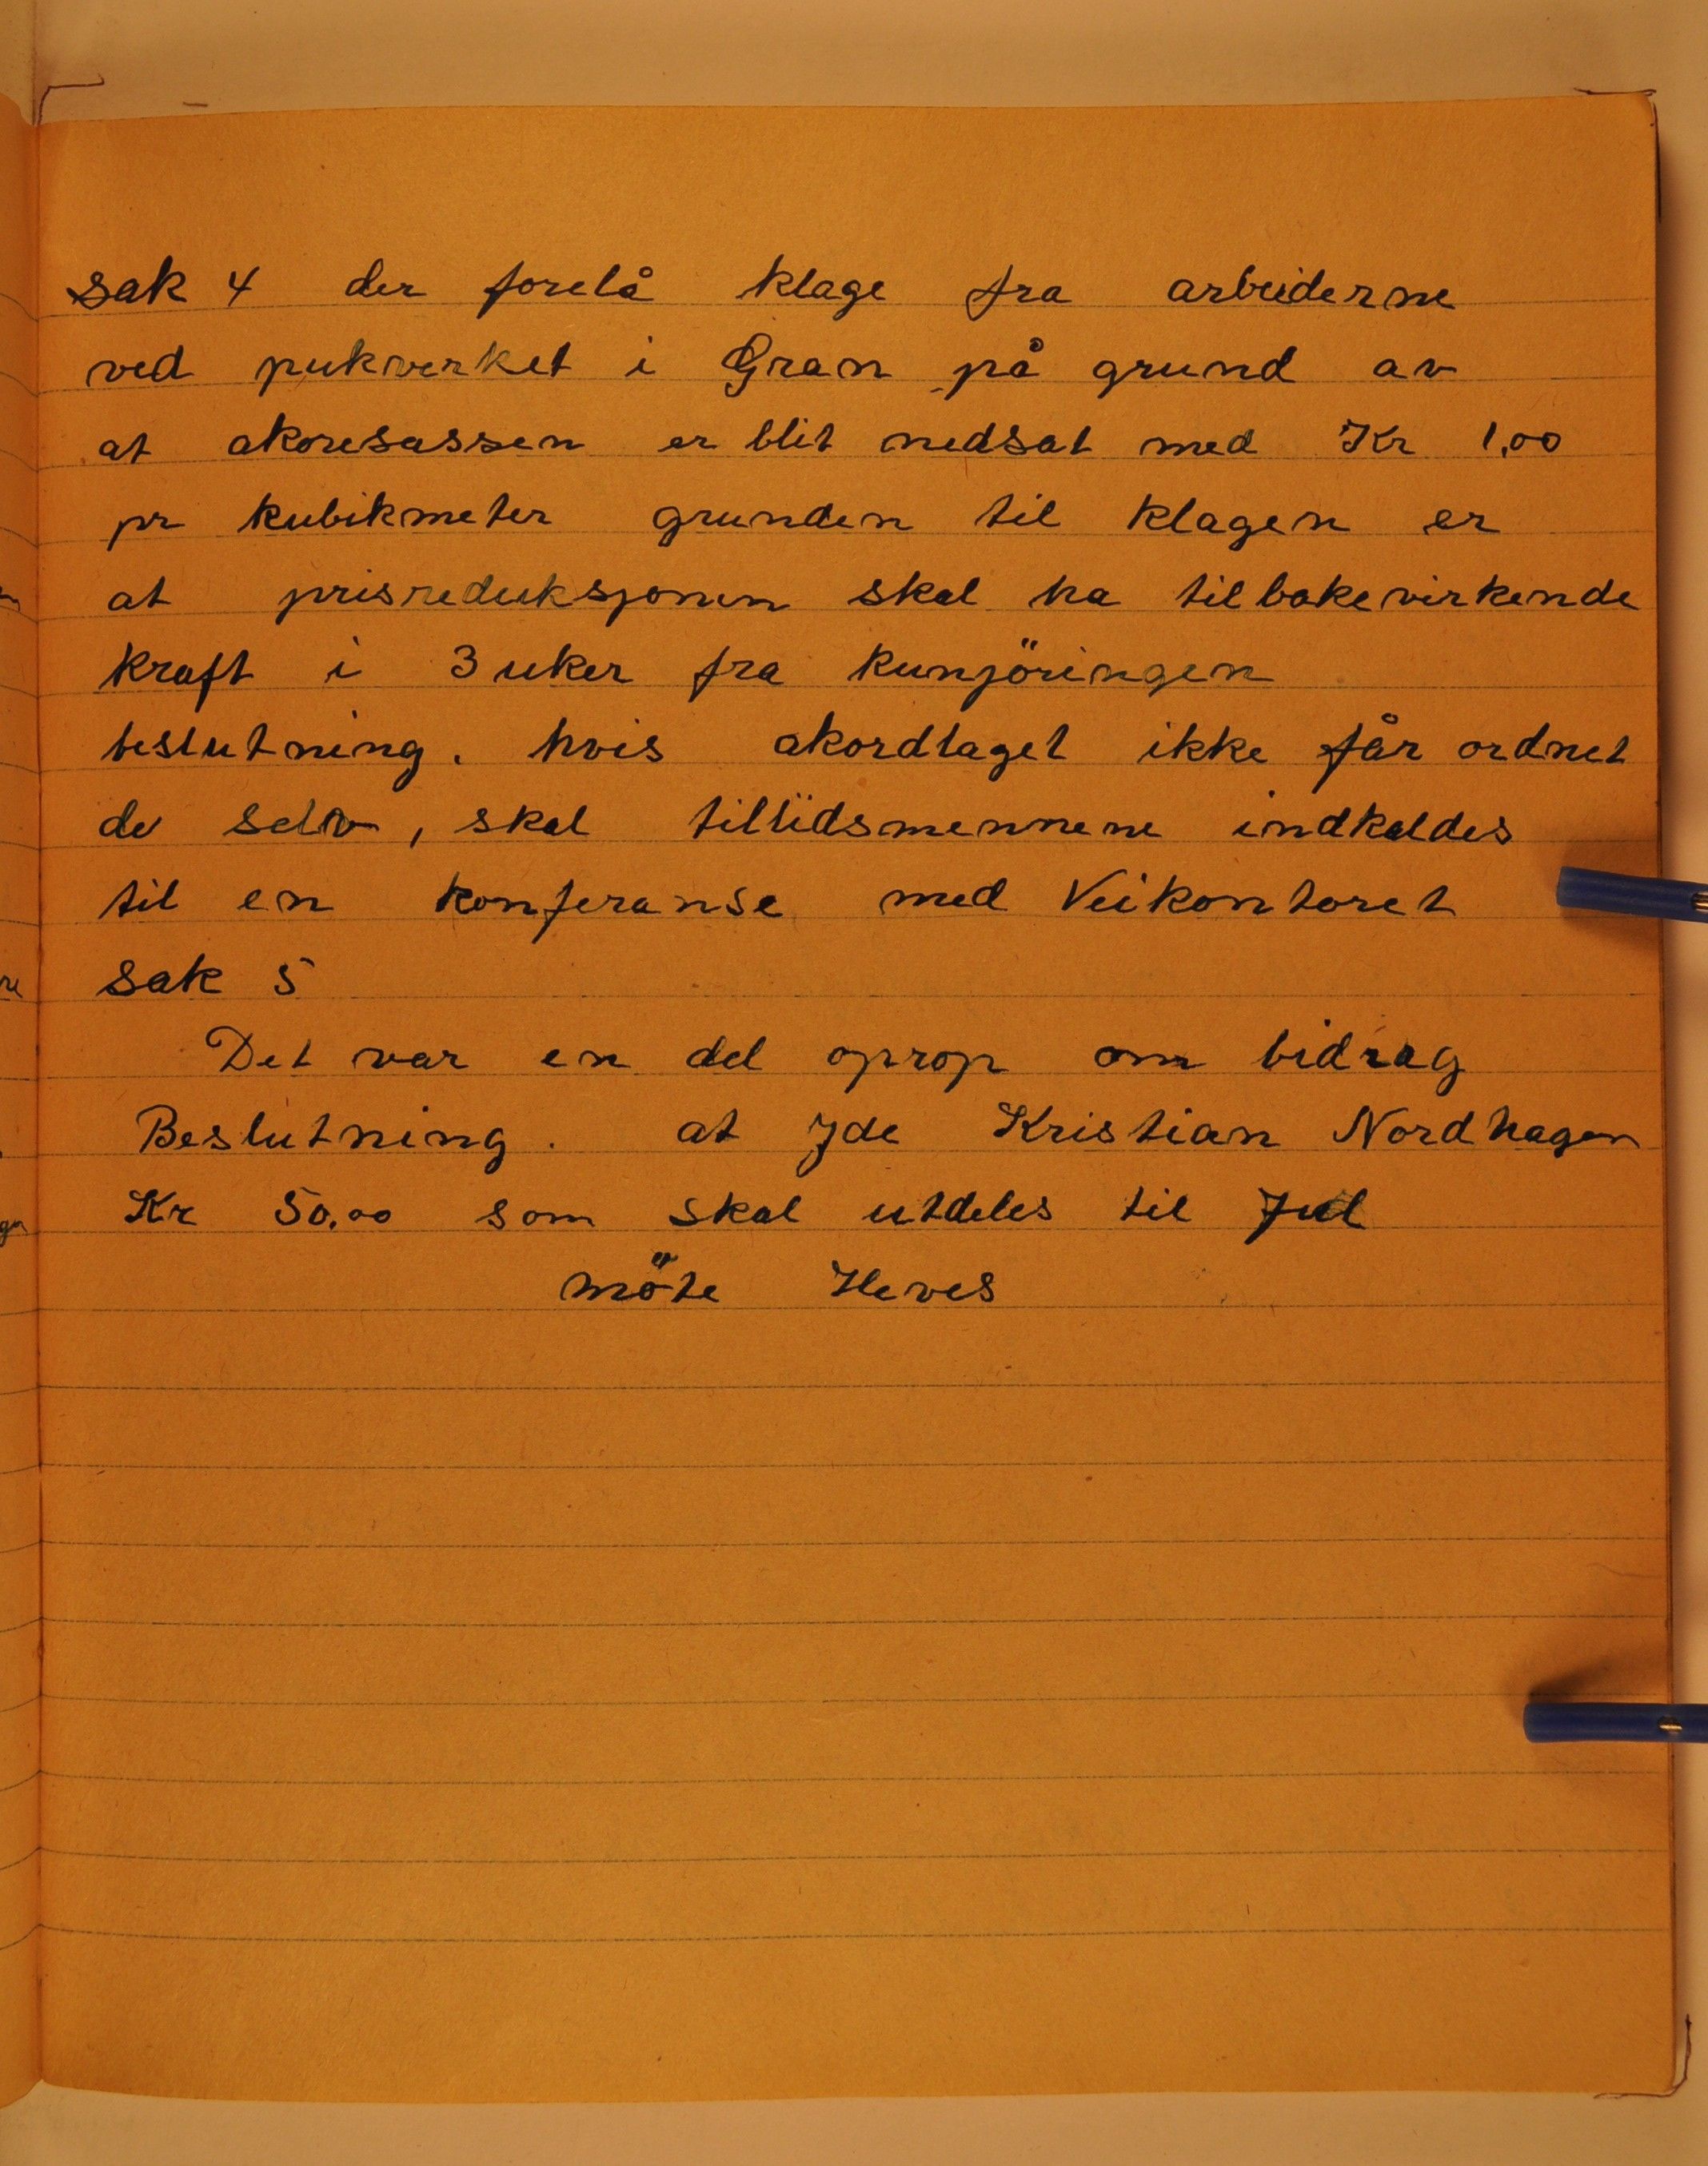 sak 4 der forelå klage fra arbeiderne
ved pukverket i Gran på grund av
at akoresassen er blit nedsat med Kr 1.00
pr kubikmeter grunden til klagen er
at prisreduksjonen skal ha tilbakevirkende
kraft i 3 uker fra kunjöringen
beslutning. hvis akordlaget ikke får ordnet
de selv, skal tillidsmennene indkaldes
til en konferanse med Veikontoret
sak 5
Det var en del oprop om bidrag
Beslutning. at Jde Kristian Nordhagen
Kr 50.00 som skal utdeles til Jul
möte Heves